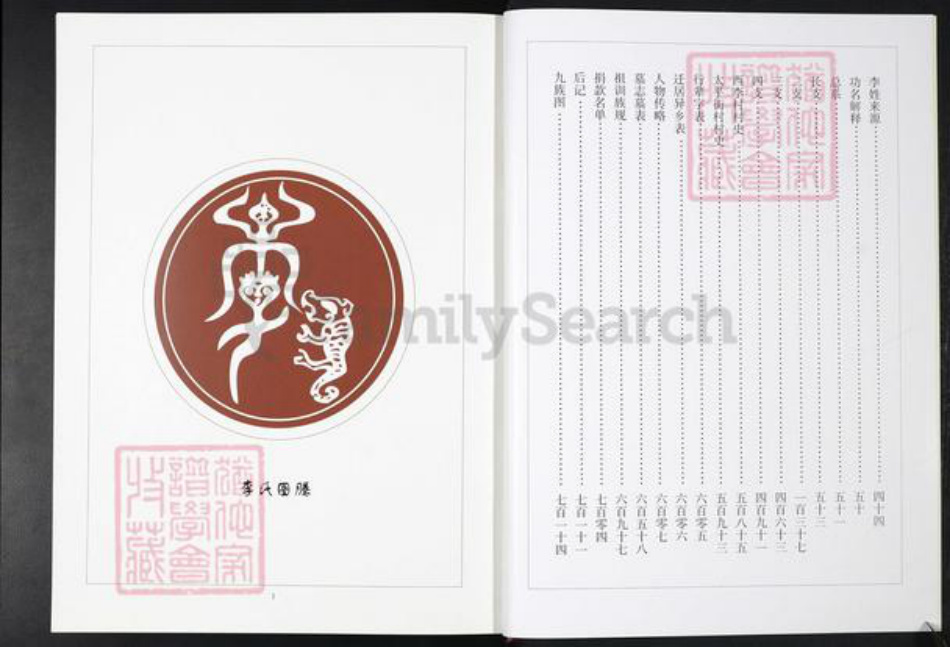 李氏图腾
1
李姓来源 四十四
功名解释 五十
总系 五十一
长支 五十三
二支 一百三十七
三支 四百六十三
四支 四百九十一
西李村村史 五百八十五
太平街村村史 五百九十三
行辈字表 六百零五
迁居异乡表 六百零六
人物传略 六百零七
墓志墓表 六百五十八
祖训族规 六百九十七
捐款名单 七百零四
后记 七百一十一
九族图 七百一十四
猶他家
譜學會
收藏
猶他家
譜學會
收藏
FamilySearch